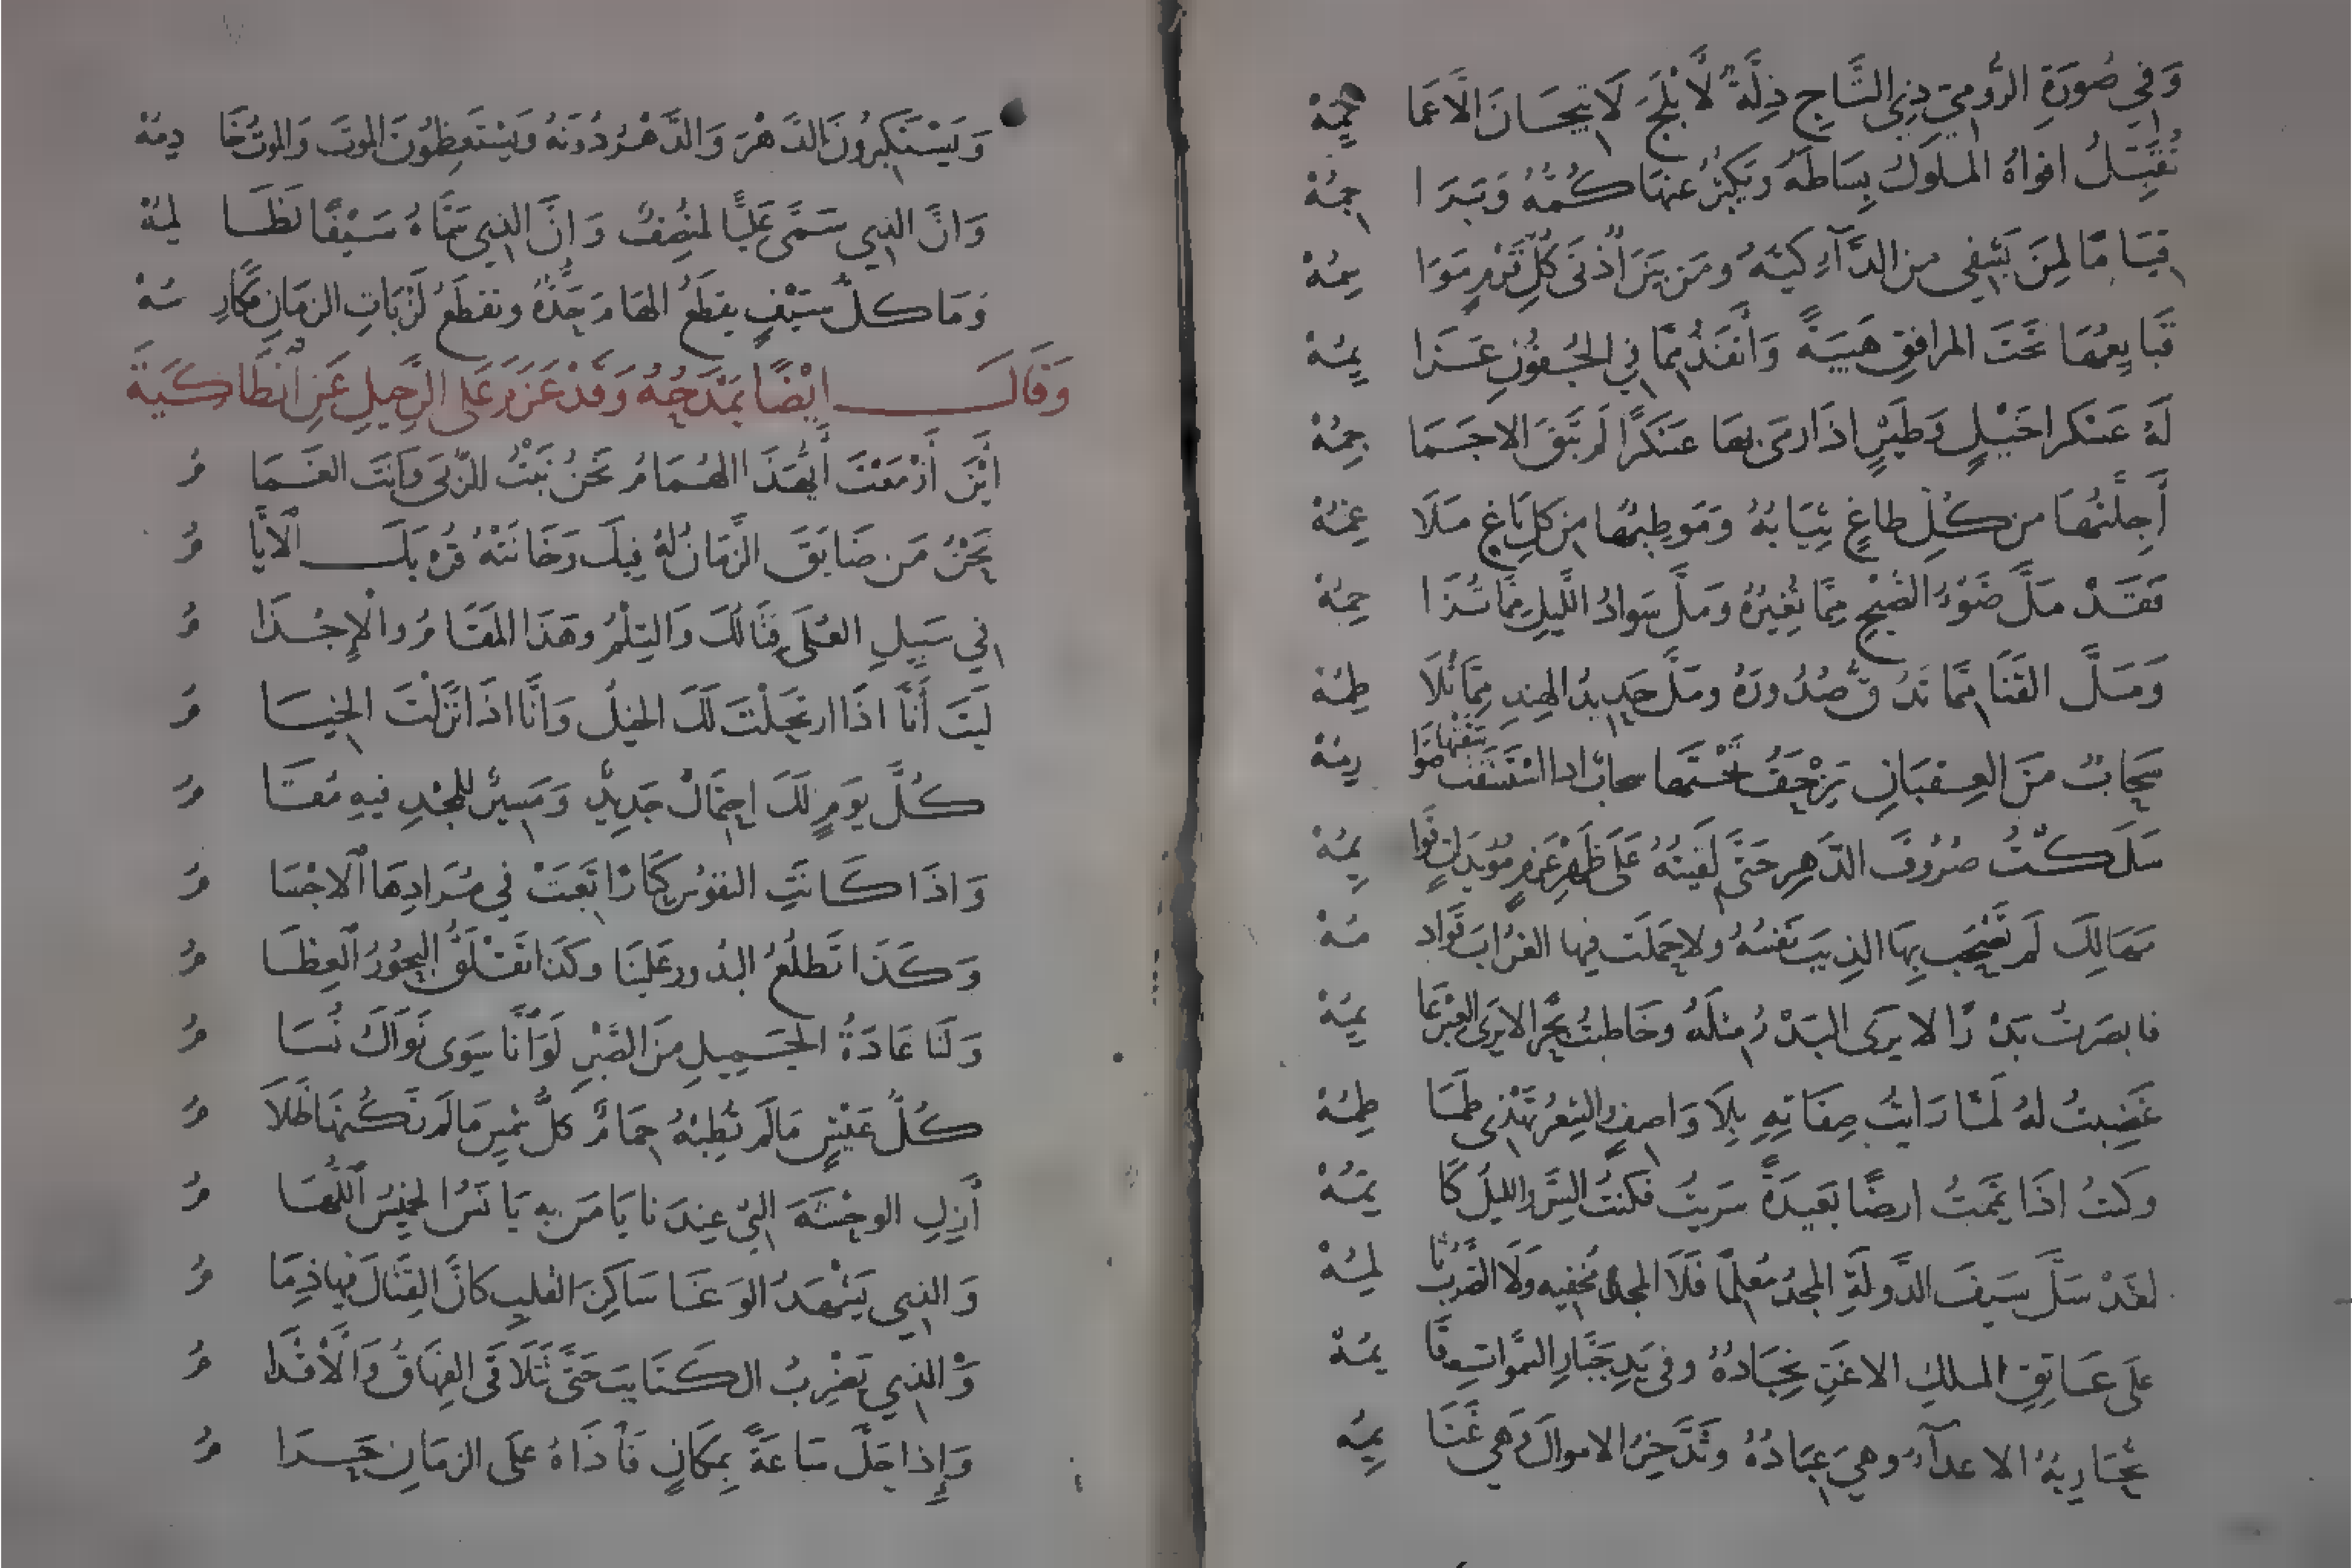 وَفِي صُورَةِ الرُّومِيّ ذِي التَّاجِ ذِلَّةٌ لَّابْلَجَ لَا تِيجَانَ اِلَّا عَمَا ئِمُهْ
تُقَبِّلُ افواهُ الملوكِ بِسَاطَهُ ويَكبُرُ عنهَا كُمُّهُ وَبَرَا جِمُهْ
قِيَامًا لِمَنْ يَشْفِي مِن الدَّآءِ كَيُّهُ ومَن بَيْنَ اُذْنَى كُلِّ قَرْمٍ مَوَا سِمُهْ
قَبَايِعُهَا تَحْتَ المرافِقِ هَيبَةً وَأَنْفَذُ مِمَّا فِي الجُفُونِ عَزَا يِمُهْ
لَهُ عَسْكَرا خَيْلٍ وَطَيْرٍ اِذَا رمَى بِهَا عَسْكَرًا لَم تَبْقَ الا جَمَا جِمُهْ
أَجِلَّتُهَا من كُلِّ طاغٍ ثِيَابُهُ وَمَوطِئُهَا مِن كلِّ بَاغٍ مَلَا غِمُهْ
فَقَدْ مَلَّ ضَوْءُ الصُّبْحِ مِمَّا تُغِيرُهُ وَمَلَّ سَوادُ اللَّيلِ مِمَّا تُزَا حِمُهْ
وَمَلَّ القَنَا مِمَّا تَدُقُّ صُدُورَهُ ومَلَّ حَدِيدُ الهِندِ مِمَّا تُلَا طِمُهْ
سَحَابٌ مِنَ العِقبَانِ يَزْحَفُ تَحْتَهَا سحابٌ اِذا استَسْقَت سَقَتْهَا صَوَا رِمُهْ
سَلَكتُ صُرُوفَ الدَّهرِ حَتَّى لَقِيتُهُ عَلَى ظَهْرِ عَزمٍ مُؤيَدَاتٍ قَوَا يِمُهْ
مَهَالِكَ لَم تَصْحَب بِهَا الذِيبَ نَفسُهُ ولا حَمَلَت فيها الغُرَابَ قَوَاد مُهْ
فابصَرتُ بَدْرًا لا يرَى البَدْرُ مثلَهُ وخَاطبتُ بَحْرًا لا يَرَى العِبْرَ عَا يِمُهْ
غَضِبتُ لهُ لَمَّا رَايتُ صِفَاتِهِ بِلَا وَاصِفٍ والشِعْرُ تَهْذِى طَمَا طِمُهْ
وَكنتُ اذَا يَمَّمتُ ارضًا بَعيدَةً سَرَيتُ فكُنتُ السِّرَّ والليلُ كَا تِمُهْ
لقَدْ سَلَّ سَيفَ الدَّولَةِ المجدُ مُعلِمًا فَلَا المجدُ مُخفِيه وَلَا الضَّربُ ثَا لِمُهْ
عَلَى عَاتِقِ المَلكِ الاغَرِّ نِجَادُهُ وفي يَدِ جَبَّارِ السَّمَواتِ قَا يِمُهْ
تُحَارِبُهُ الاعدآءُ وهيَ عِبَادُهُ وتَدَّخِرُ الاموالَ وَهيَ غَنَا يِمُهْ
وَيَسْتَكبِرُونَ الدَّهْرَ وَالدَّهْرُ دُونَهُ وَيَسْتَعظِمُونَ الموتَ وَالموتُ خَا دِمُهْ
وَاِنَّ الذِي سَمَّى عَلِيًّا لَمُنصِفٌ وَاِنَّ الذِي سَمَّاهُ سَيْفًا لَظَا لِمُهْ
وَمَا كلُّ سَيْفٍ يقطَعُ الهَامَ حَدُّهُ وتقطَعُ لَزْبَاتِ الزمَانِ مَكَارِ مُهْ
وَقَالَ ايْضًا يَمْدَحُهُ وَقَدْ عَزَمَ عَلَى الرَّحِيلِ عَنِ انْطَاكِيَةَ
أَيْنَ أَزْمَعْتَ أَيُّهَذَا الهُمَامُ نَحْنُ نَبْتُ الرُّبَى وَانتَ الغَمَا مُ
نَحْنُ مَن ضَايَقَ الزَّمَانُ لَهُ فِيكَ وَخَانَتْهُ قُرْبَكَ الايَّا مُ
في سَبِيلِ العُلَى قِتَالُكَ وَالسِّلْمُ وهَذَا المَقَامُ والإِجْذَا مُ
لَيتَ أَنَّا اذَا ارتَحَلْتَ لَكَ الخيلُ وَانَّا اذَا نَزَلْتَ الخِيَا مُ
كُلَّ يَومٍ لَكَ احتِمَالٌ جَدِيدٌ وَمَسِيرٌ لِلمَجْدِ فيهِ مُقَا مُ
وَاِذَا كَانَتِ النفُوسُ كِبَارًا تَعِبَتْ فِي مُرَادِهَا الاجْسَا مُ
وَكَذَا تَطلُعُ البُدورُ عَلَينَا وكَذَا تَقْلَقُ البُحُورُ العِظَا مُ
وَلَنَا عَادَةُ الجَمِيلِ مِنَ الصَّبْرِ لَوَ انَّا سِوَى نَوَاكَ نُسَا مُ
كُلُّ عَيْشٍ مَا لَم تُطِبْهُ حِمَامٌ كلُّ شَمْسٍ مَا لَم تَكُنهَا ظَلَا مُ
أَزِلِ الوحْشَةَ التي عِندَنا يَا مَن بِهِ يَانَسُ الخمِيسُ اللُّهَا مُ
وَالذِي يَشْهَدُ الوَغَا سَاكِنَ القَلبِ كَانَّ القِتَالَ فِيها ذِمَا مُ
وَالذِي يَضْرِبُ الكَتَايبَ حَتَّى تَتَلَاقَى الفِهَاقُ وَالأَقْدَا مُ
وَإِذا حَلَّ سَاعَةً بِمَكَانٍ فَأَذَاهُ عَلَى الزمَانِ حَرَا مُ